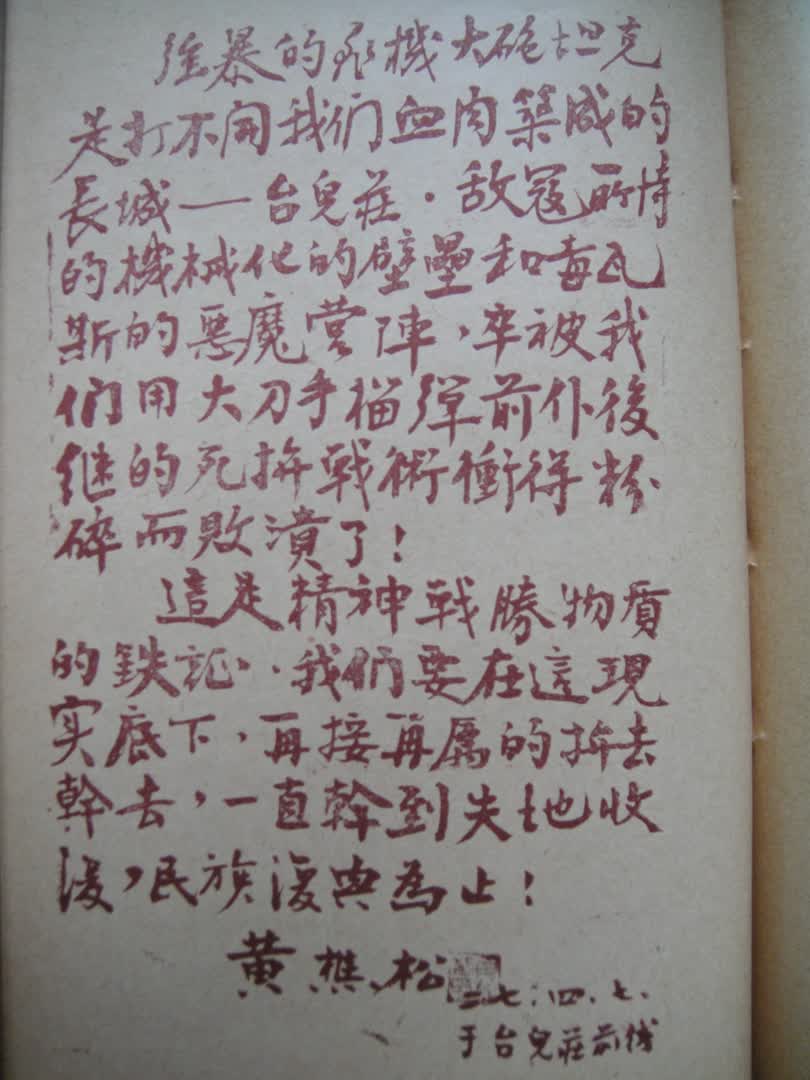 强暴的飛機大砲坦克
是打不開我们血肉築成的
長城——台兒莊．敌寇所恃
的機械化的壁壘和毒瓦
斯的惡魔营陣，卒被我
們用大刀手榴弹前仆後
继的死拚戰術衝得粉
碎而敗潰了！
這是精神戰勝物质
的鉄証．我们要在這現
实底下，再接再厲的拚去
幹去，一直幹到失地收
復，民族復興為止！
黄樵松
二七．四．七．
于台兒莊前线